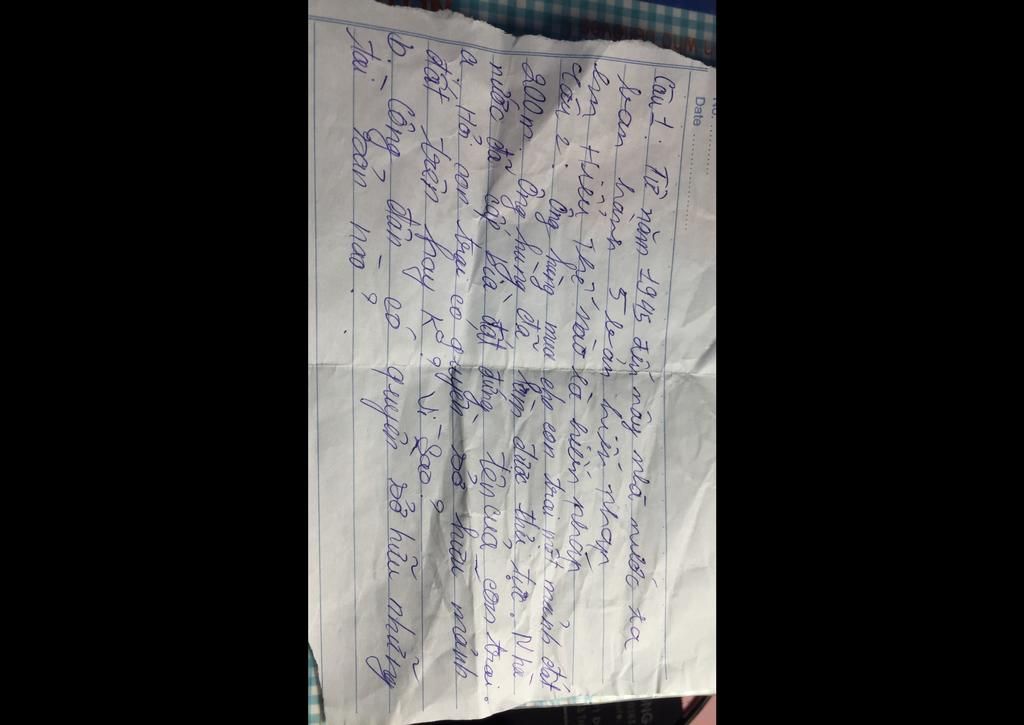 No. ............
Date ....................
Câu 1. Từ năm 1945 đến nay nhà nước ta
ban hành 5 bản hiến pháp
em Hiểu thế nào là hiến pháp
Câu 2. Ông hùng mua cho con trai một mảnh đất
200m. Ông hùng đã làm đươc thủ tục. Nhà
nước đã cấp bìa đất đứng tên của con trai.
a. Hỏi con trai có quyền sở hữu mảnh
đất trên hay k? vì sao?
b. Công dân có quyền sở hữu những
tài sản nào?